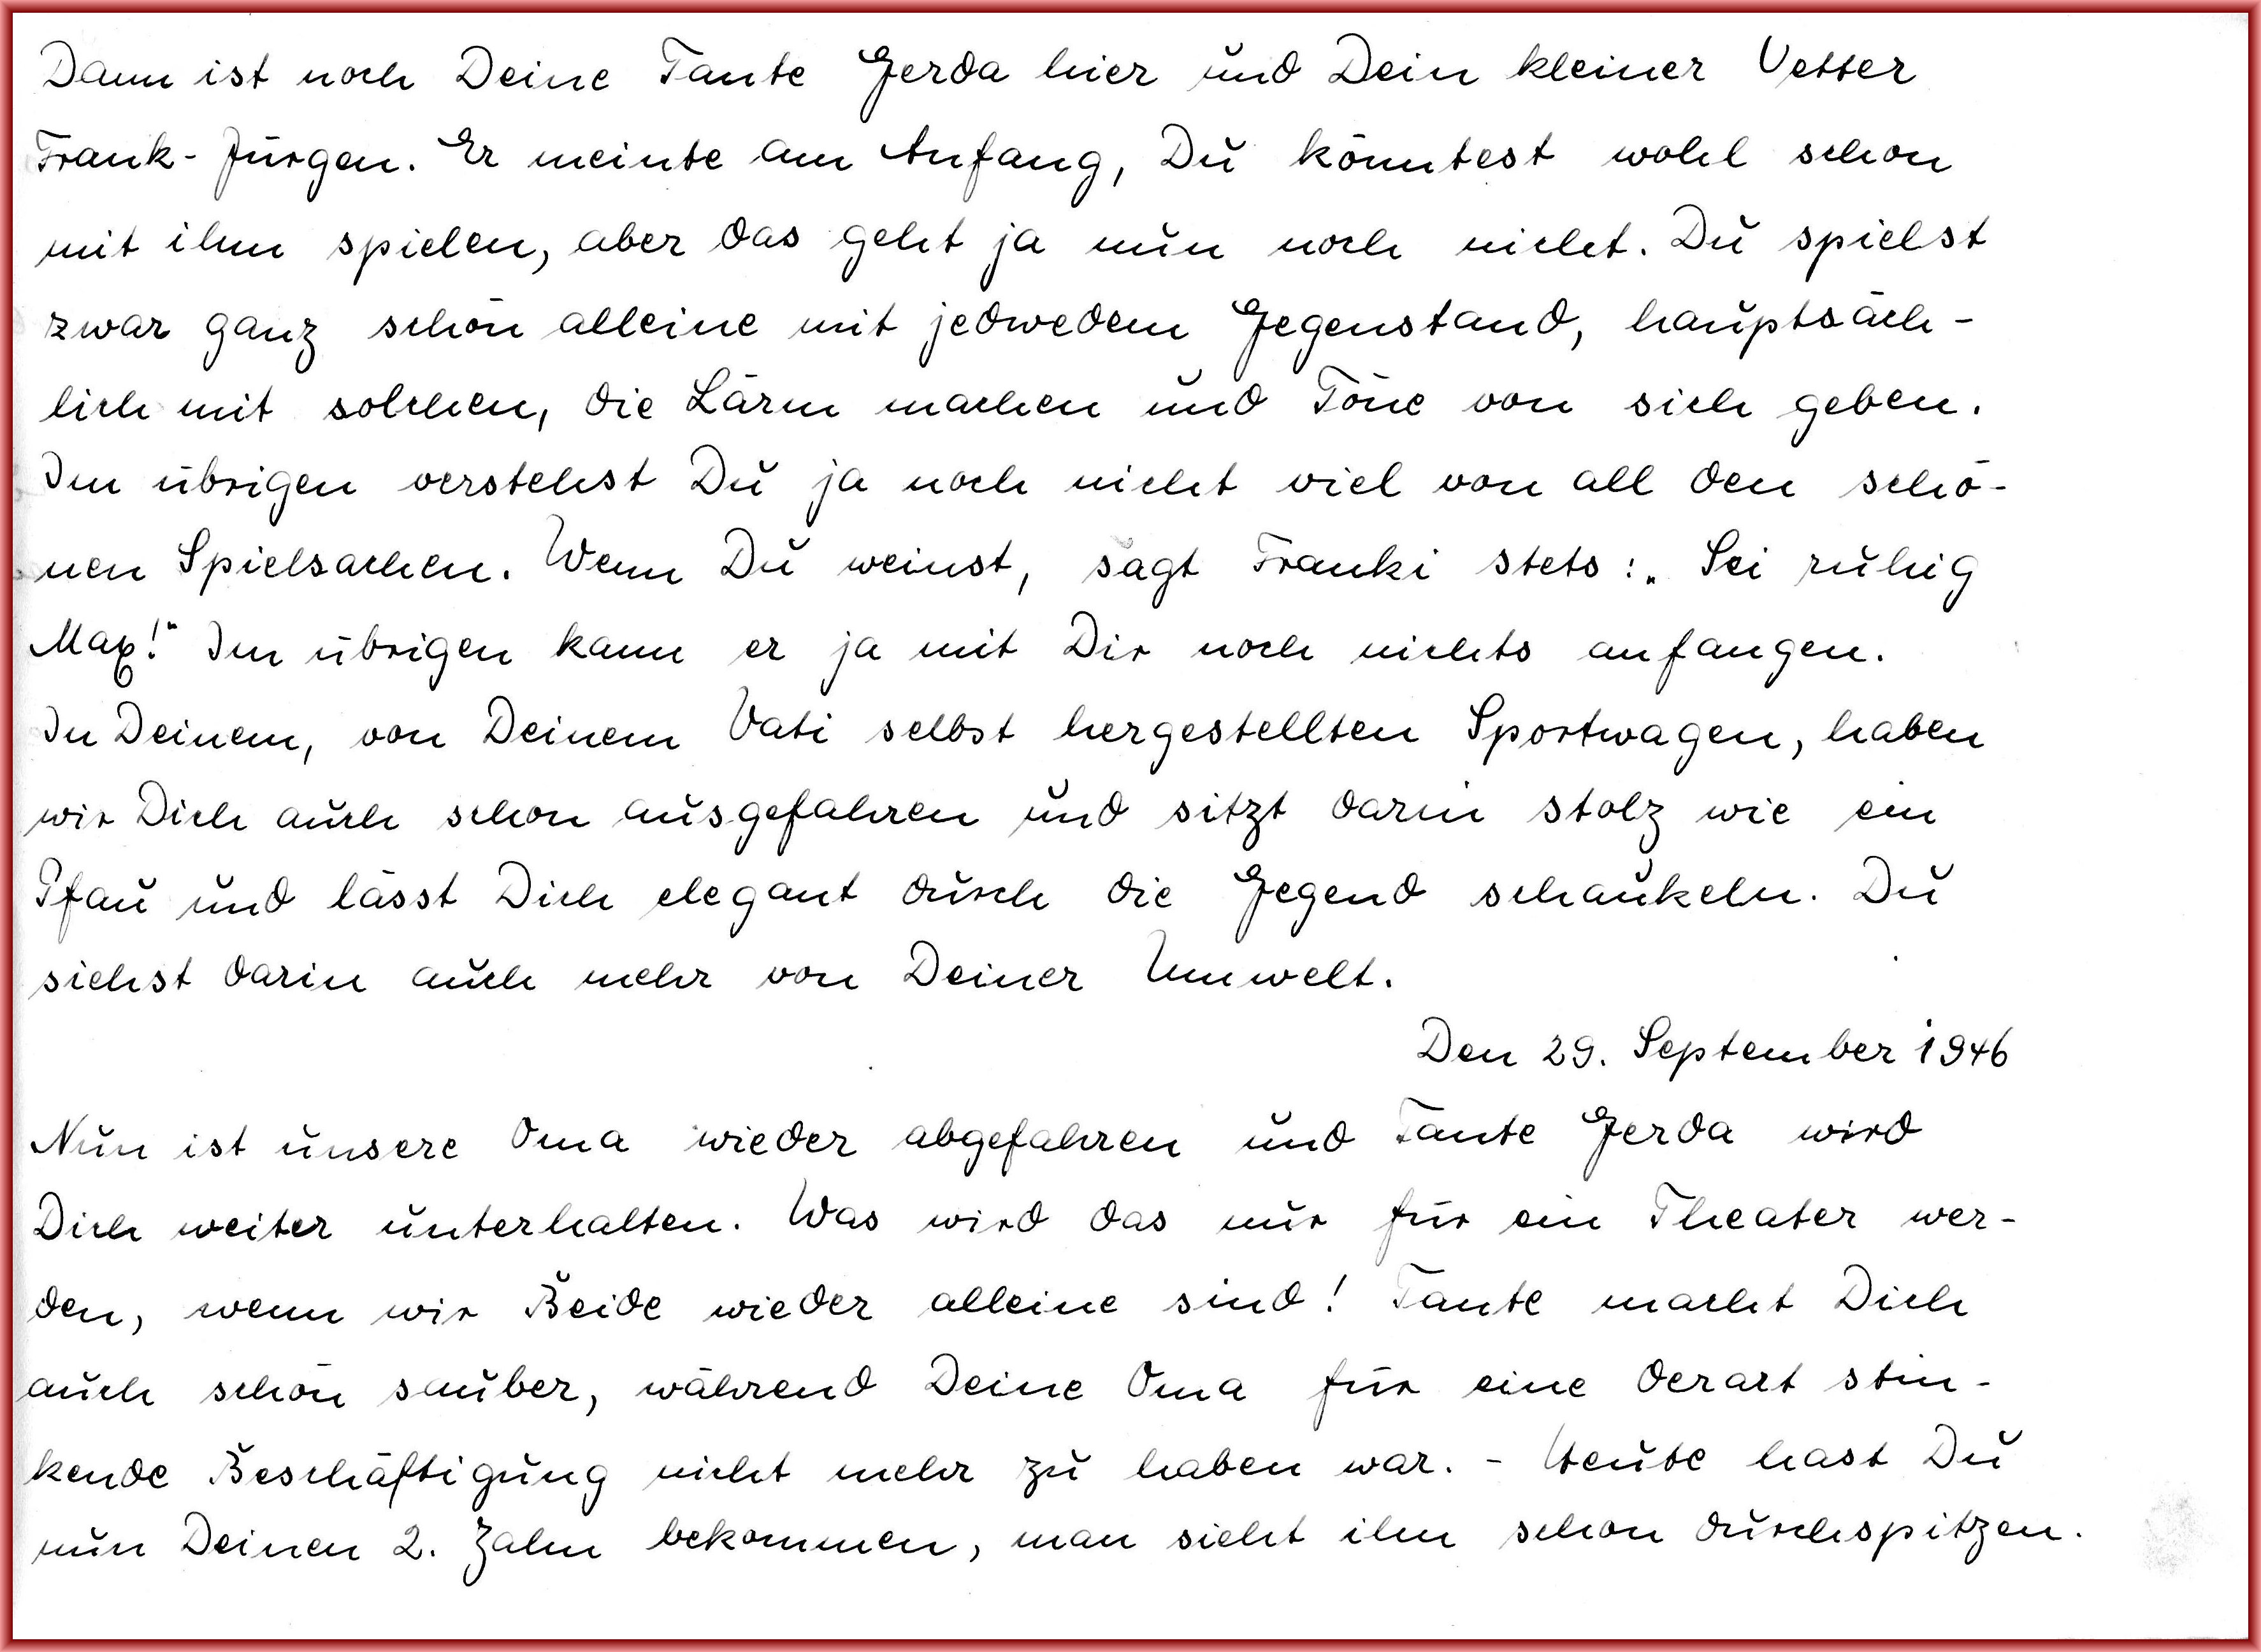 Dann ist noch Deine Tante Gerda hier und Dein kleiner Vetter
Frank-Jürgen. Er meinte am Anfang, Du könntest wohl schon
mit ihm spielen, aber das geht ja nun noch nicht. Du spielst
zwar ganz schön alleine mit jedwedem Gegenstand, hauptsäch-
lich mit solchen, die Lärm machen und Töne von sich geben.
Im übrigen verstehst Du ja noch nicht viel von all den schö-
nen Spielsachen. Wenn Du weinst, sagt Franki stets: „Sei ruhig
Max!" Im übrigen kann er ja mit Dir noch nichts anfangen.
In Deinem, von Deinem Vati selbst hergestellten Sportwagen, haben
wir Dich auch schon ausgefahren und sitzt darin stolz wie ein
Pfau und lässt Dich elegant durch die Gegend schaukeln. Du
siehst darin auch mehr von Deiner Umwelt.
Den 29. September 1946
Nun ist unsere Oma wieder abgefahren und Tante Gerda wird
Dich weiter unterhalten. Was wird das nur für ein Theater wer-
den, wenn wir Beide wieder alleine sind! Tante macht Dich
auch schön sauber, während Deine Oma für eine derart stin-
kende Beschäftigung nicht mehr zu haben war. - Heute hast Du
nun Deinen 2. Zahn bekommen, man sieht ihn schon durchspitzen.